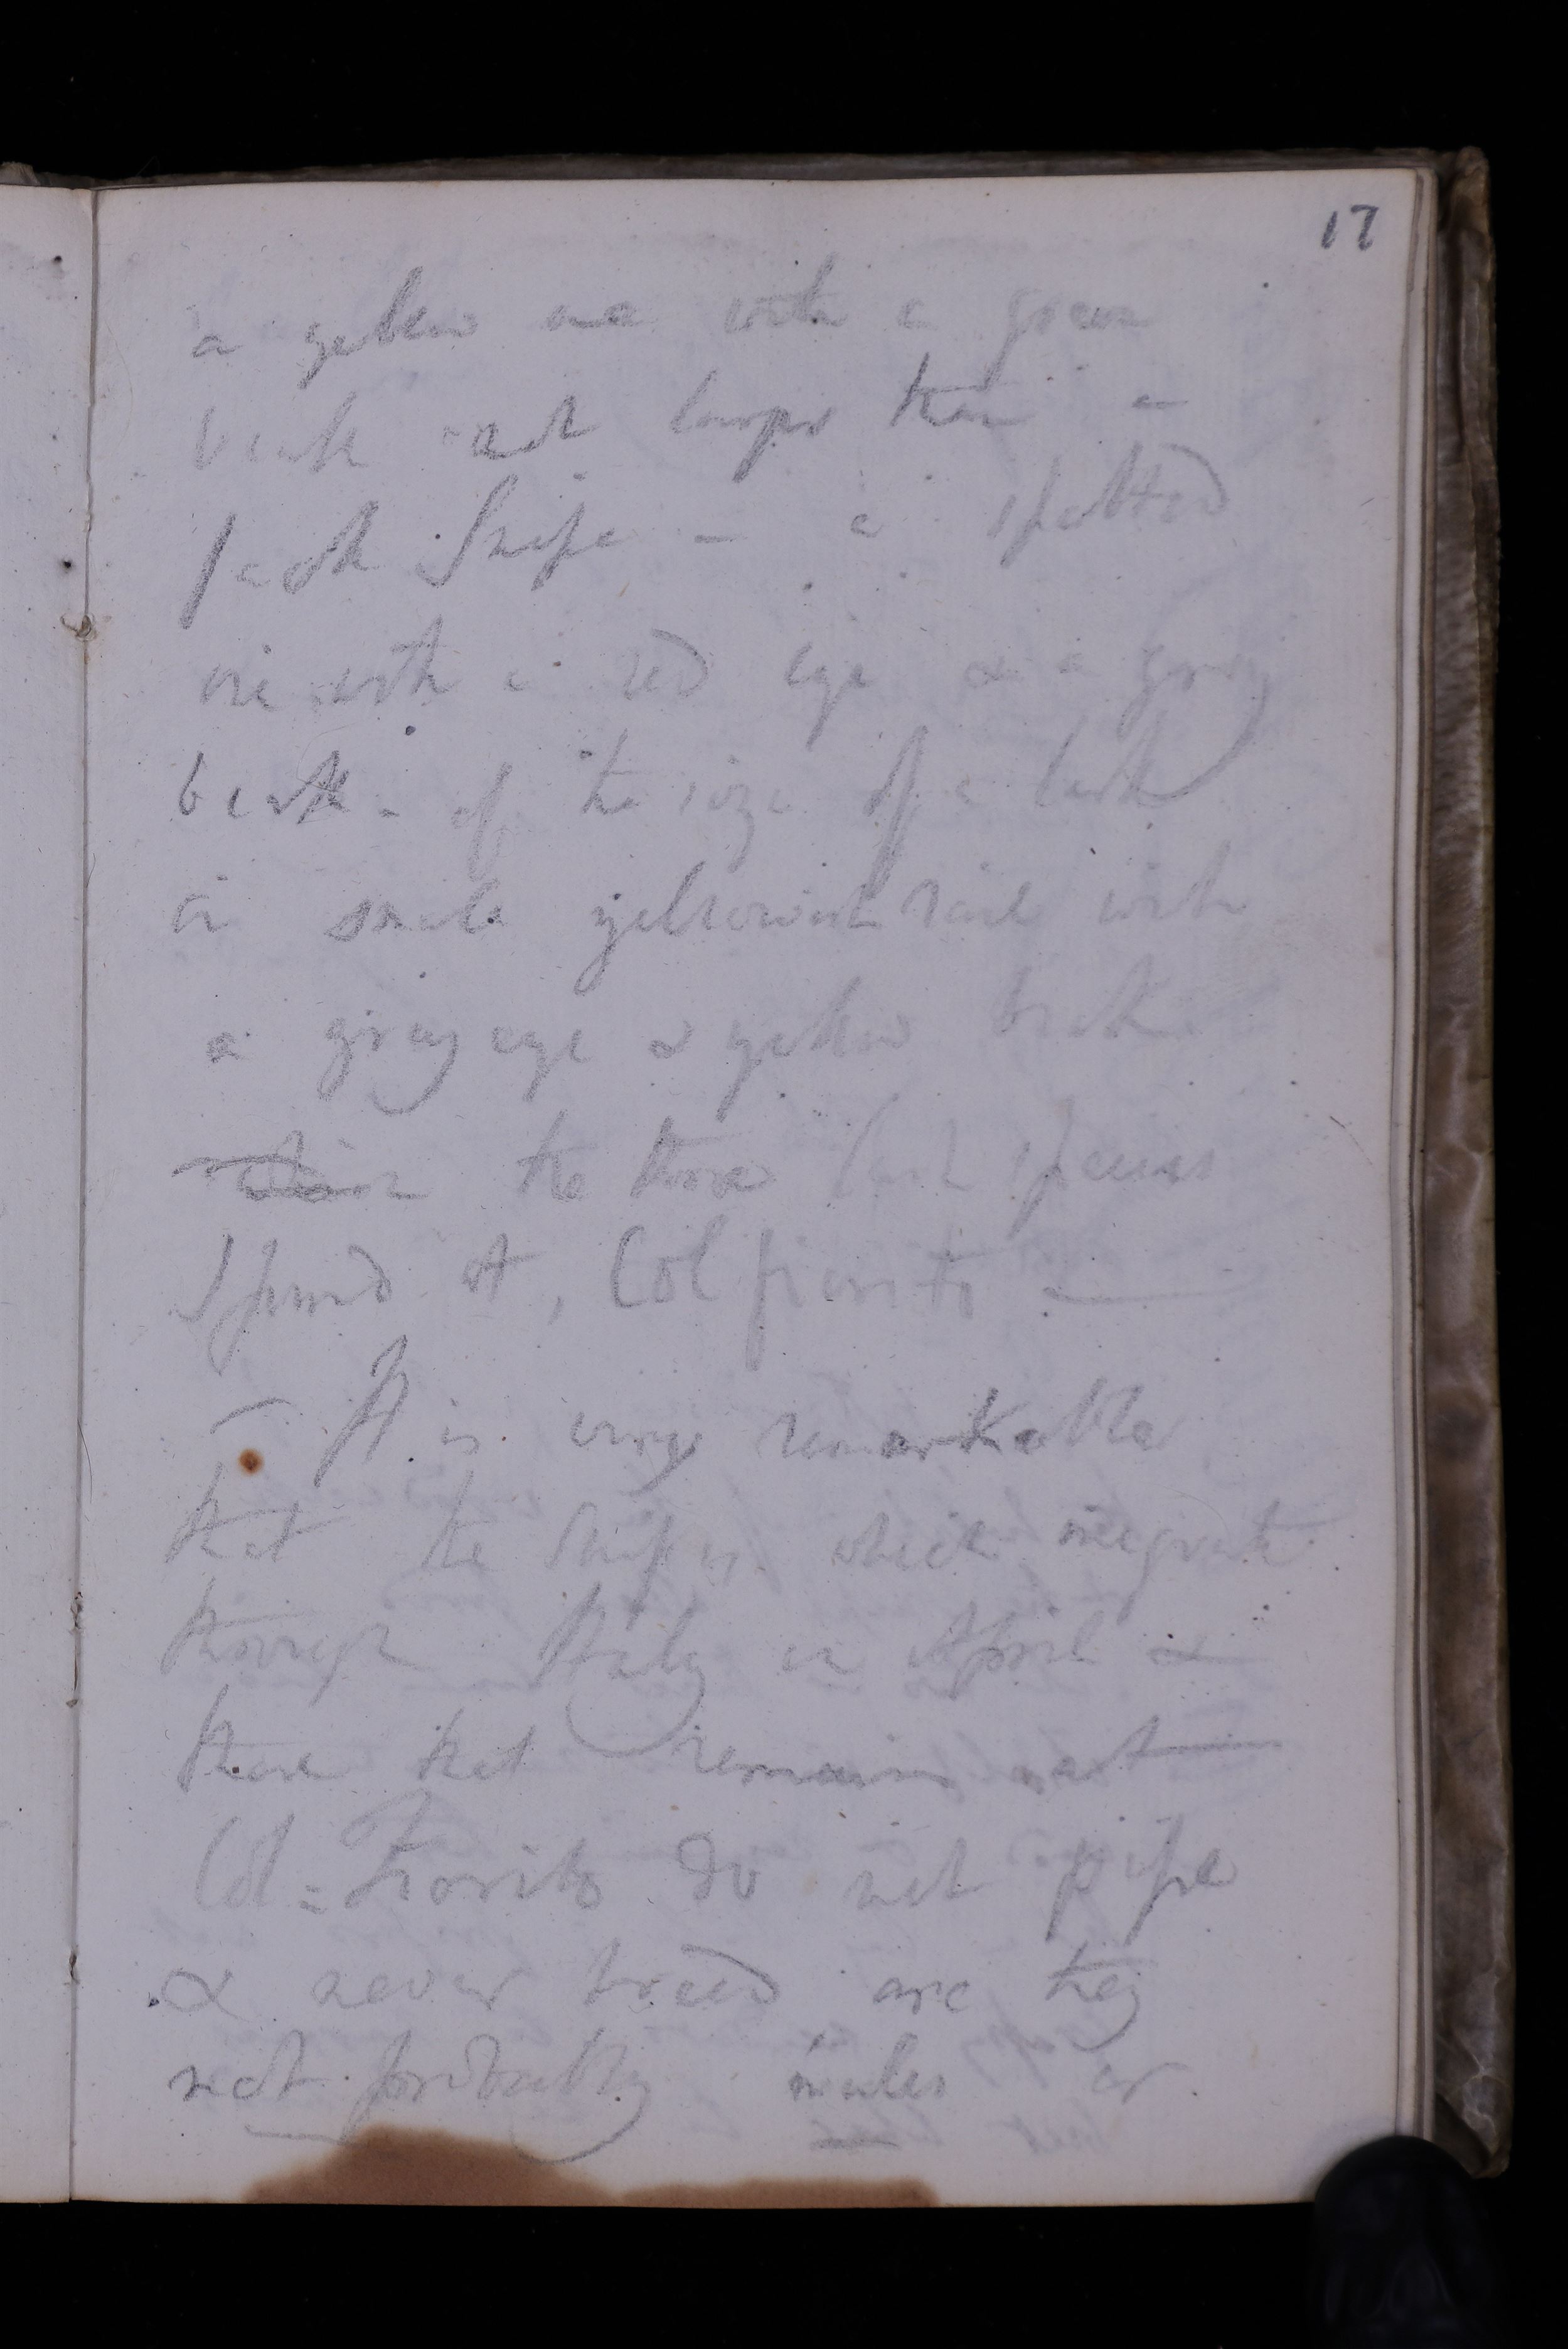 17
a yellow one with a green
beak not larger than a
Jack Snipe – a spotted
one with a red eye & a grey
beak – of the size of a lark
a small yellowish rail with
a grey eye & yellow beak
the three last species
I found at, Col fiorito —
– It is very remarkable
that the Snipes which migrate
through Italy in April &
those that remain at
Col = Fiorito do not pipe
& never breed are they
not probably males or